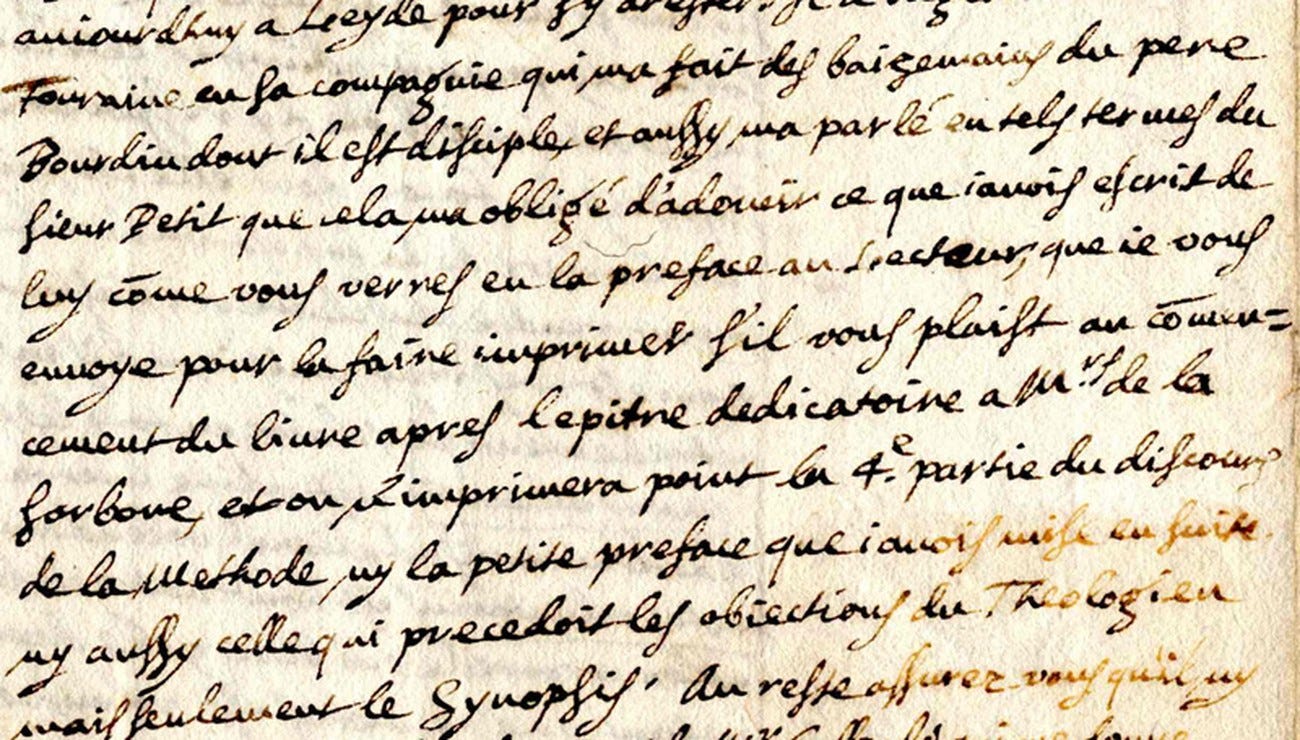 auiourdhuy a Leyde pour sy arester.
Touraine en sa compagnie qui ma fait des baizemains du pere
Bourdin dont il est disciple, et aussy ma parlé en tels termes du
sieur Petit que cela ma obligé dadoucir ce que iauois escrit de
luy cōme vous verres en la preface au Lecteur, que ie vous
enuoye pour la faire imprimer s'il vous plaist au cōmen=
cement du liure apres lepitre dedicatoire a Mrs de la
sorbone, et on n'imprimera point la 4.e partie du discours
de la Methode ny la petite preface que iauois mise en suite
ny aussy celle qui precedoit les obiections du Theologien
mais seulement le Synopsis. Au reste assurez vous qu'il ny